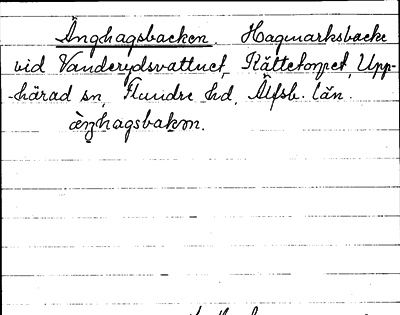 Änghagsbacken. Hagmarksbacke
vid Vanderydsvattnet, Rättetorpet, Upp-
-härad sn, Flundre hd, Älfsb. län.